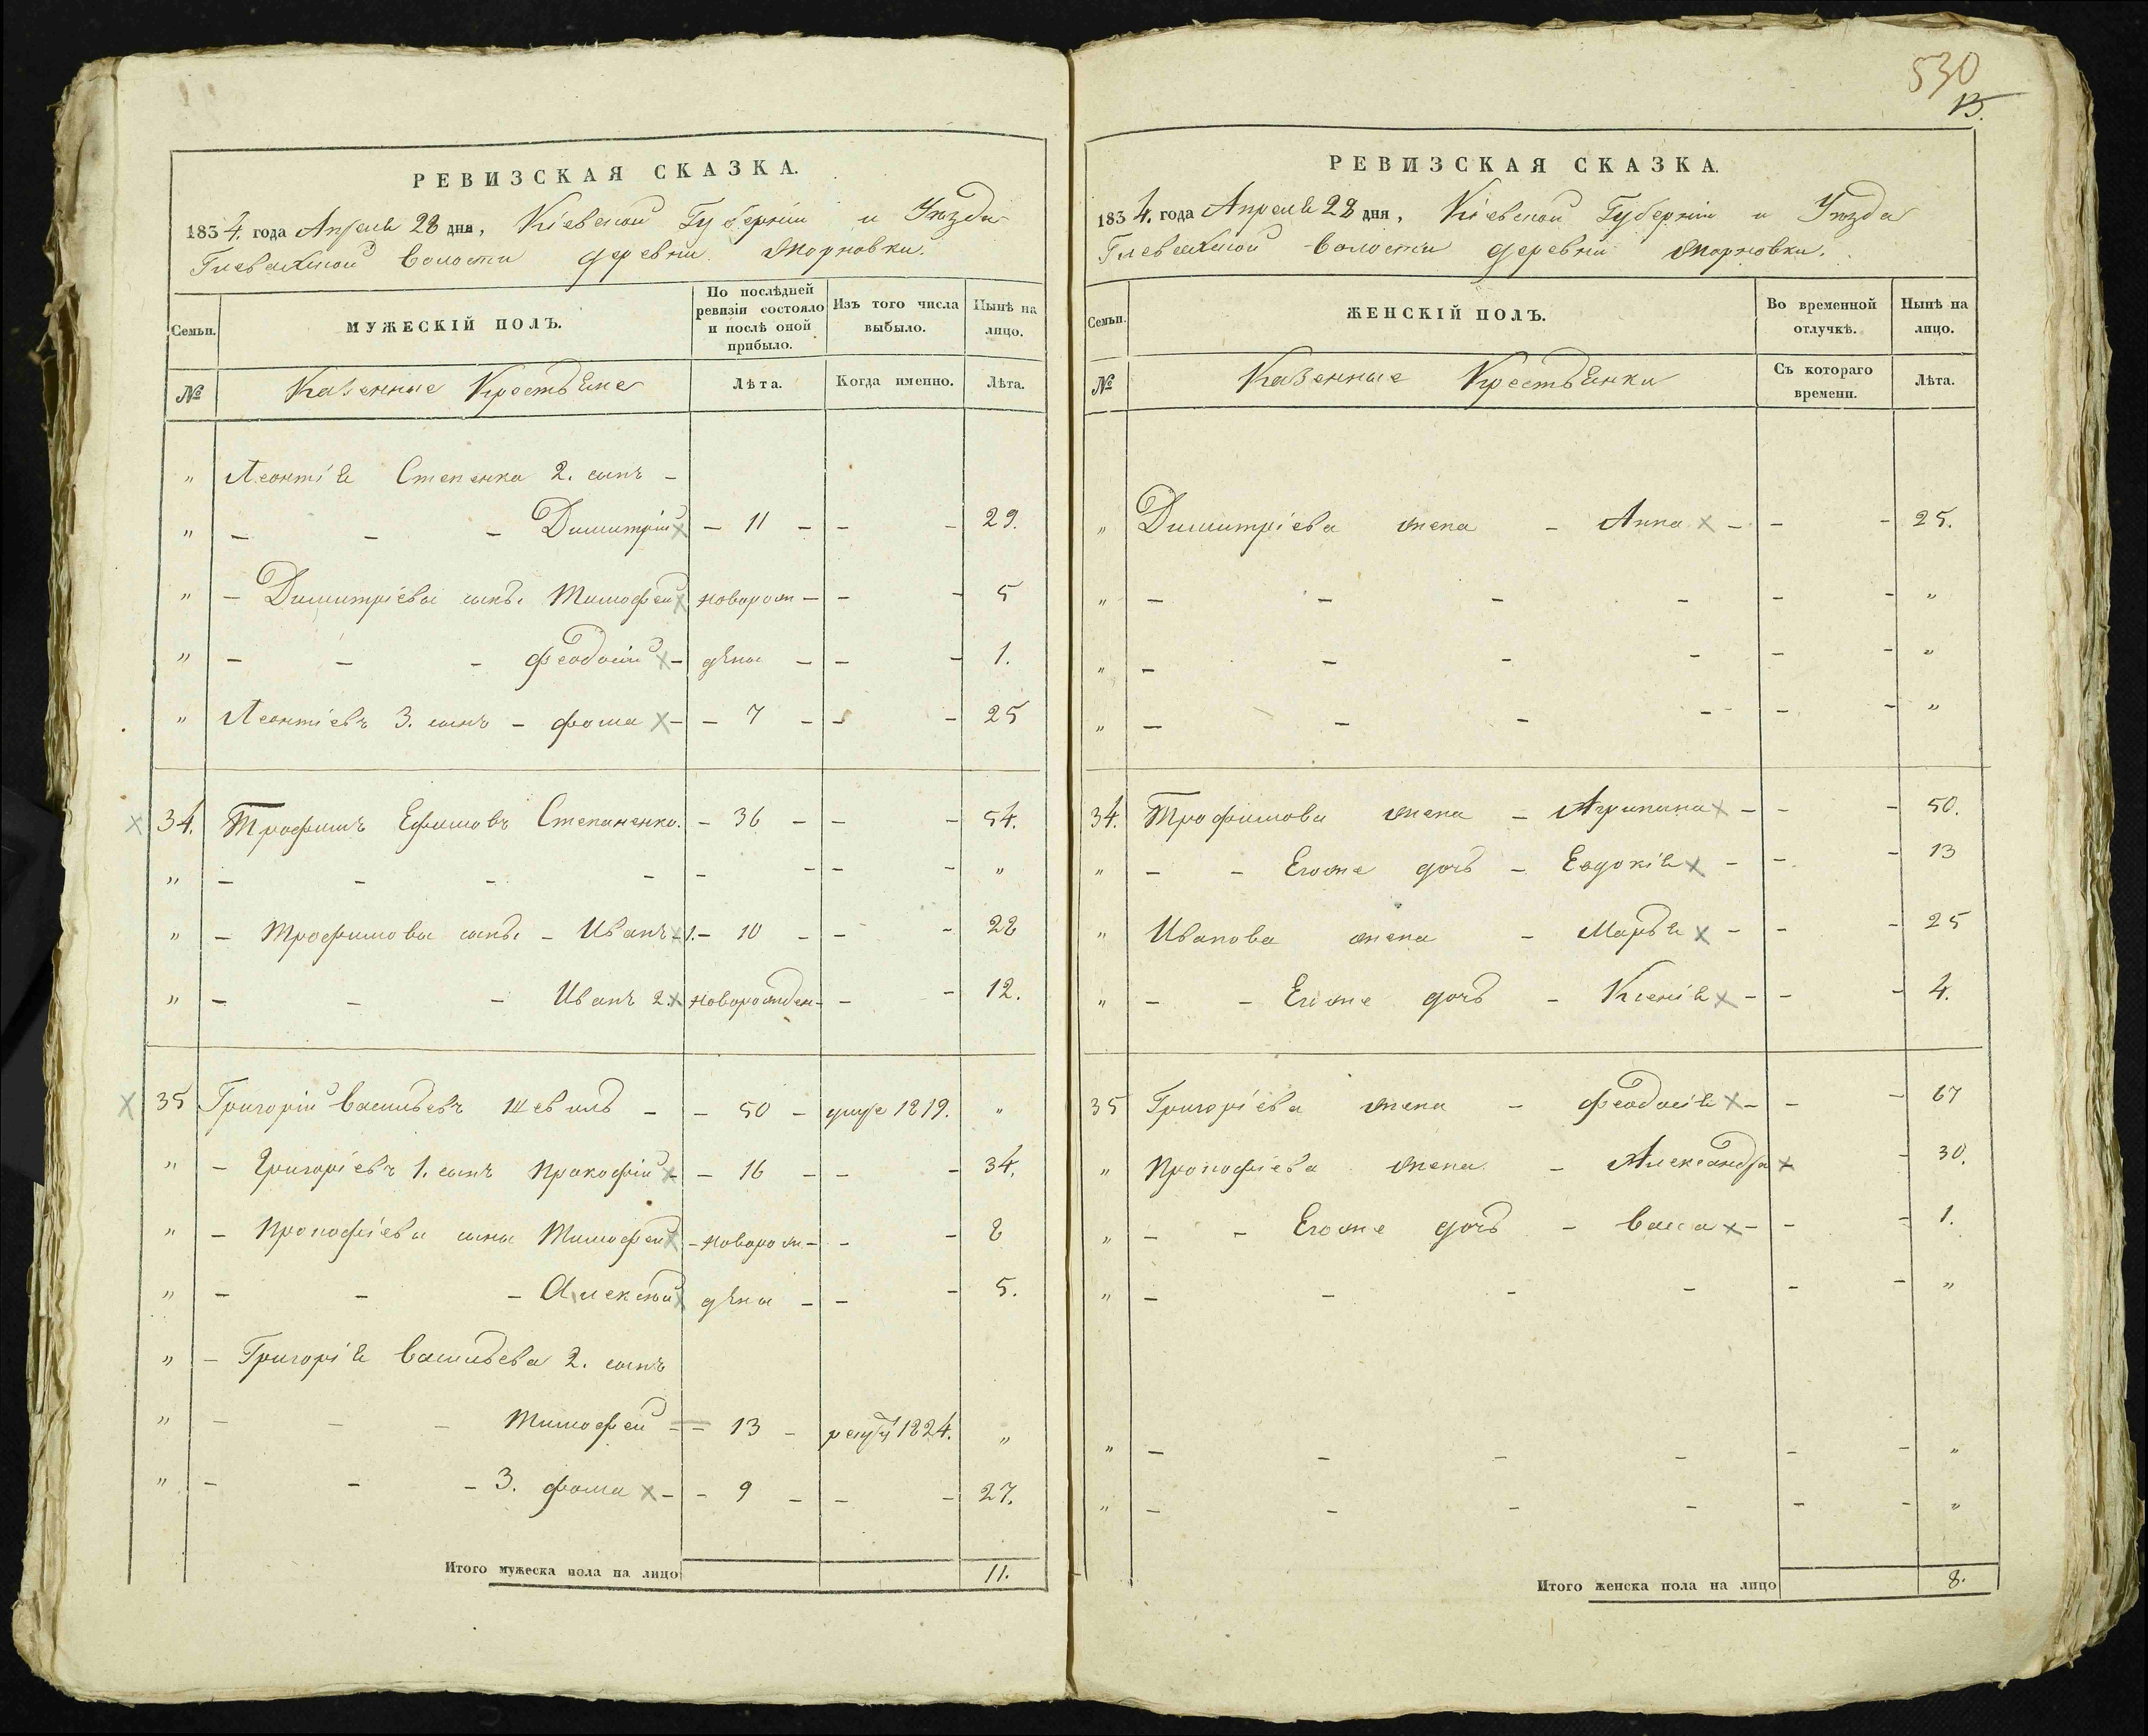 530
13.
РЕВИЗСКАЯ СКАЗКА.
1834. года Апреля 28 дня, Кіевской Губерніи и Уѣзда
Глевахской волости деревни Жорновки.
Семьи.
МУЖЕСКІЙ ПОЛЪ.
По послѣдней ревизіи состояло и послѣ оной прибыло.
Изъ того числа выбыло.
Нынѣ на лицо.
№
Казенные Крестьяне
Лѣта.
Когда именно.
Лѣта.
" Леонтія Степенка 2. сынъ -
" - - - Димитрій х - 11 - - - 29.
" - Димитріевы сыны Тимофей х новорож - - - 5
" - - - Феодосій х - дены - - - 1.
" Леонтіевъ 3. сынъ - Фома х - - 7 - - - 25
х 34. Трофимъ Ефимовъ Степаненко. - 36 - - - 54.
" - - - - - - - - "
" - Трофимовы сыны - Иванъ х 1. - 10 - - - 28
" - - - Иванъ 2. х новорожден - - - 12.
х 35 Григорій Васильевъ Шевиль - - 50 - умре 1819. "
" - Григоріевъ 1. сынъ Прокофій х - - 16 - - - 34.
" - Прокофіевы сыны Тимофей х - новорож - - - 8
" - - - Алексѣй х дены - - - 5.
" - Григорія Васильева 2. сынъ
" - - - Тимофей - - 13 - 1824. "
" - - - 3. Фома х - - 9 - - - 27.
Итого мужеска пола на лицо 11.
РЕВИЗСКАЯ СКАЗКА.
1834. года Апреля 28 дня, Кіевской Губерніи и Уѣзда
Глевахской волости деревни Жорновки.
Семьи.
ЖЕНСКІЙ ПОЛЪ.
Во временной отлучкѣ.
Нынѣ на лицо.
№
Казенные Крестьянки
Съ котораго времени.
Лѣта.
" Димитріева жена - Анна х - - - 25.
" - - - - - - "
" - - - - - - "
" - - - - - - "
34. Трофимова жена - Агрипина х - - - 50.
" - - Егоже дочь - Евдокія х - - - 13
" Иванова жена - Марья х - - - 25
" - - Егоже дочь - Ксенія х - - - 4.
35 Григоріева жена - Феодосія х - - - 67
" Прокофіева жена - Александра х - 30.
" - - Егоже дочь - Васса х - - - 1.
" - - - - - - "
" - - - - - - "
" - - - - - - "
Итого женска пола на лицо 8.